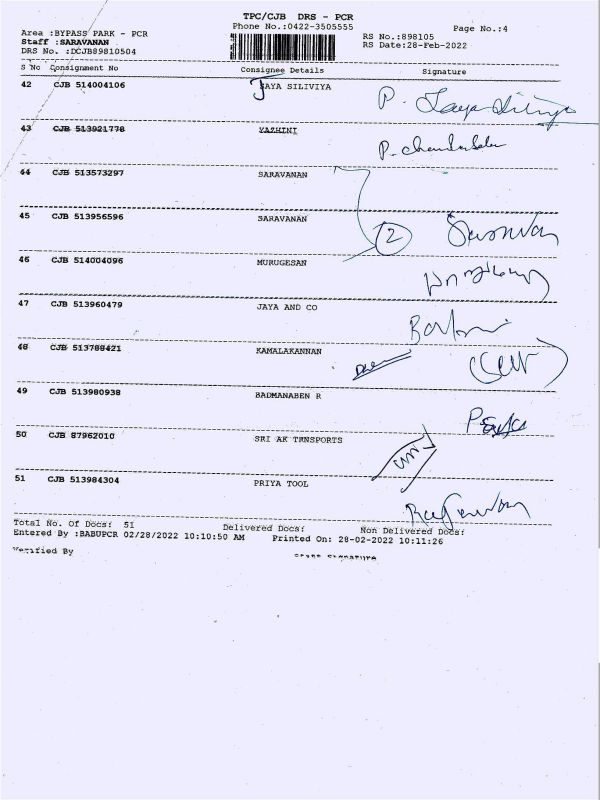 TPC/CJB DRS - PCR
Phone No.:0422-3505555
Page No.:4
Area :BYPASS PARK - PCR
Staff :SARAVANAN
DRS No. :DCJB89810504
RS No.:898105
RS Date:28-Feb-2022
S No Consignment No Consignee Details Signature
42 CJB 514004106 JAYA SILIVIYA P. Jaya
43 CJB 513921778 YAZHINI P. Chandra
44 CJB 513573297 SARAVANAN
45 CJB 513956596 SARAVANAN 2 Saravanan
46 CJB 514004096 MURUGESAN
47 CJB 513960479 JAYA AND CO
48 CJB 513788421 KAMALAKANNAN
49 CJB 513980938 BADMANABEN R
50 CJB 87962010 SRI AK TRNSPORTS
51 CJB 513984304 PRIYA TOOL
Total No. Of Docs: 51 Delivered Docs: Non Delivered Docs:
Entered By :BABUPCR 02/28/2022 10:10:50 AM Printed On: 28-02-2022 10:11:26
Verified By Staff Signature